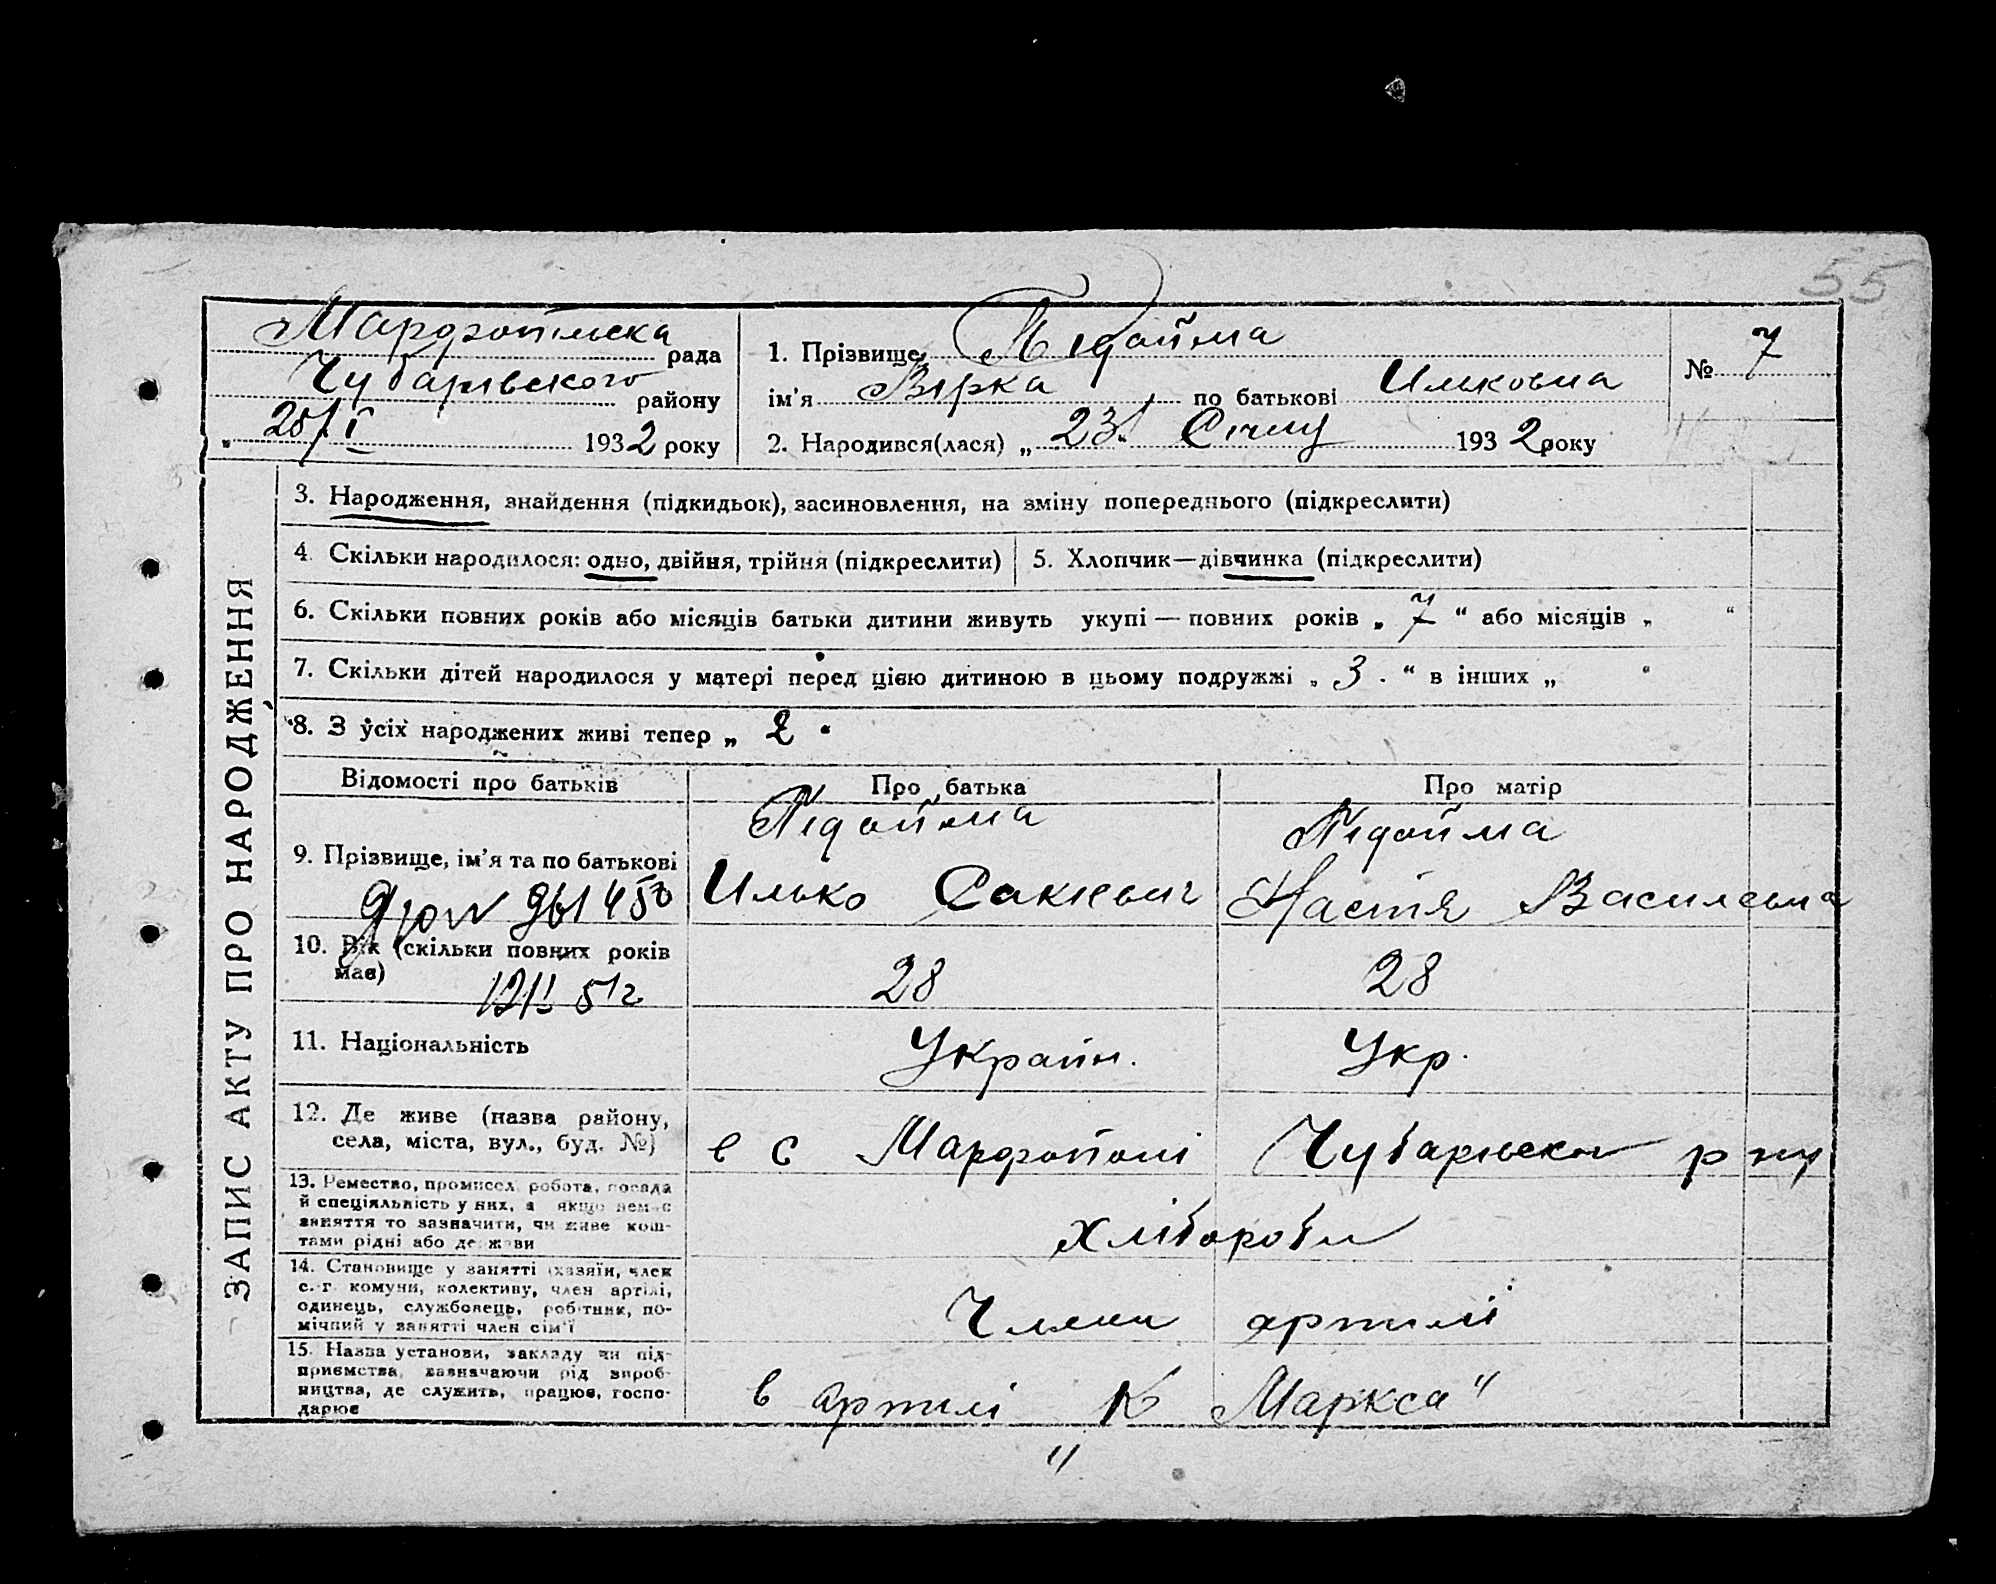 55
Марфопільска рада
Чубарівського району
„ 25/I 1932 року
1. Прізвище Підойма
ім'я Вірка по батькові Ильковна
2. Народився(лася) „ 23. Січня 1932 року
№ 7
ЗАПИС АКТУ ПРО НАРОДЖЕННЯ
3. Народження, знайдення (підкидьок), засиновлення, на зміну попереднього (підкреслити)
4. Скільки народилося: одно, двійня, трійня (підкреслити)
5. Хлопчик—дівчинка (підкреслити)
6. Скільки повних років або місяців батьки дитини живуть укупі — повних років „ 7 “ або місяців „ “
7. Скільки дітей народилося у матері перед цією дитиною в цьому подружжі „ 3. “ в інших „ “
8. З усіх народжених живі тепер „ 2 “
Відомості про батьків Про батька Про матір
9. Прізвище, ім'я та по батькові
961450
Підойма
Илько
Підойма
Настя Василевна
10. Вік (скільки повних років
має)
51г
28
28
11. Національність
Україн.
Укр.
12. Де живе (назва району,
села, міста, вул., буд. №)
в с Марфополі Чубарівськ р ну
13. Ремество, промисел, робота, посада
й спеціяльність у них, а якщо немає
заняття то зазначити, чи живе кош-
тами рідні або держави
хлібороби
14. Становище у занятті (хазяїн, член
с.-г. комуни, колективу, член артілі,
одинець, службовець, робітник, по-
мічний у занятті член сім'ї
Члени артилі
15. Назва установи, закладу чи під-
приємства, зазначаючи рід вироб-
ництва, де служить, працює, госпо-
дарює
в артилі „К Маркса"